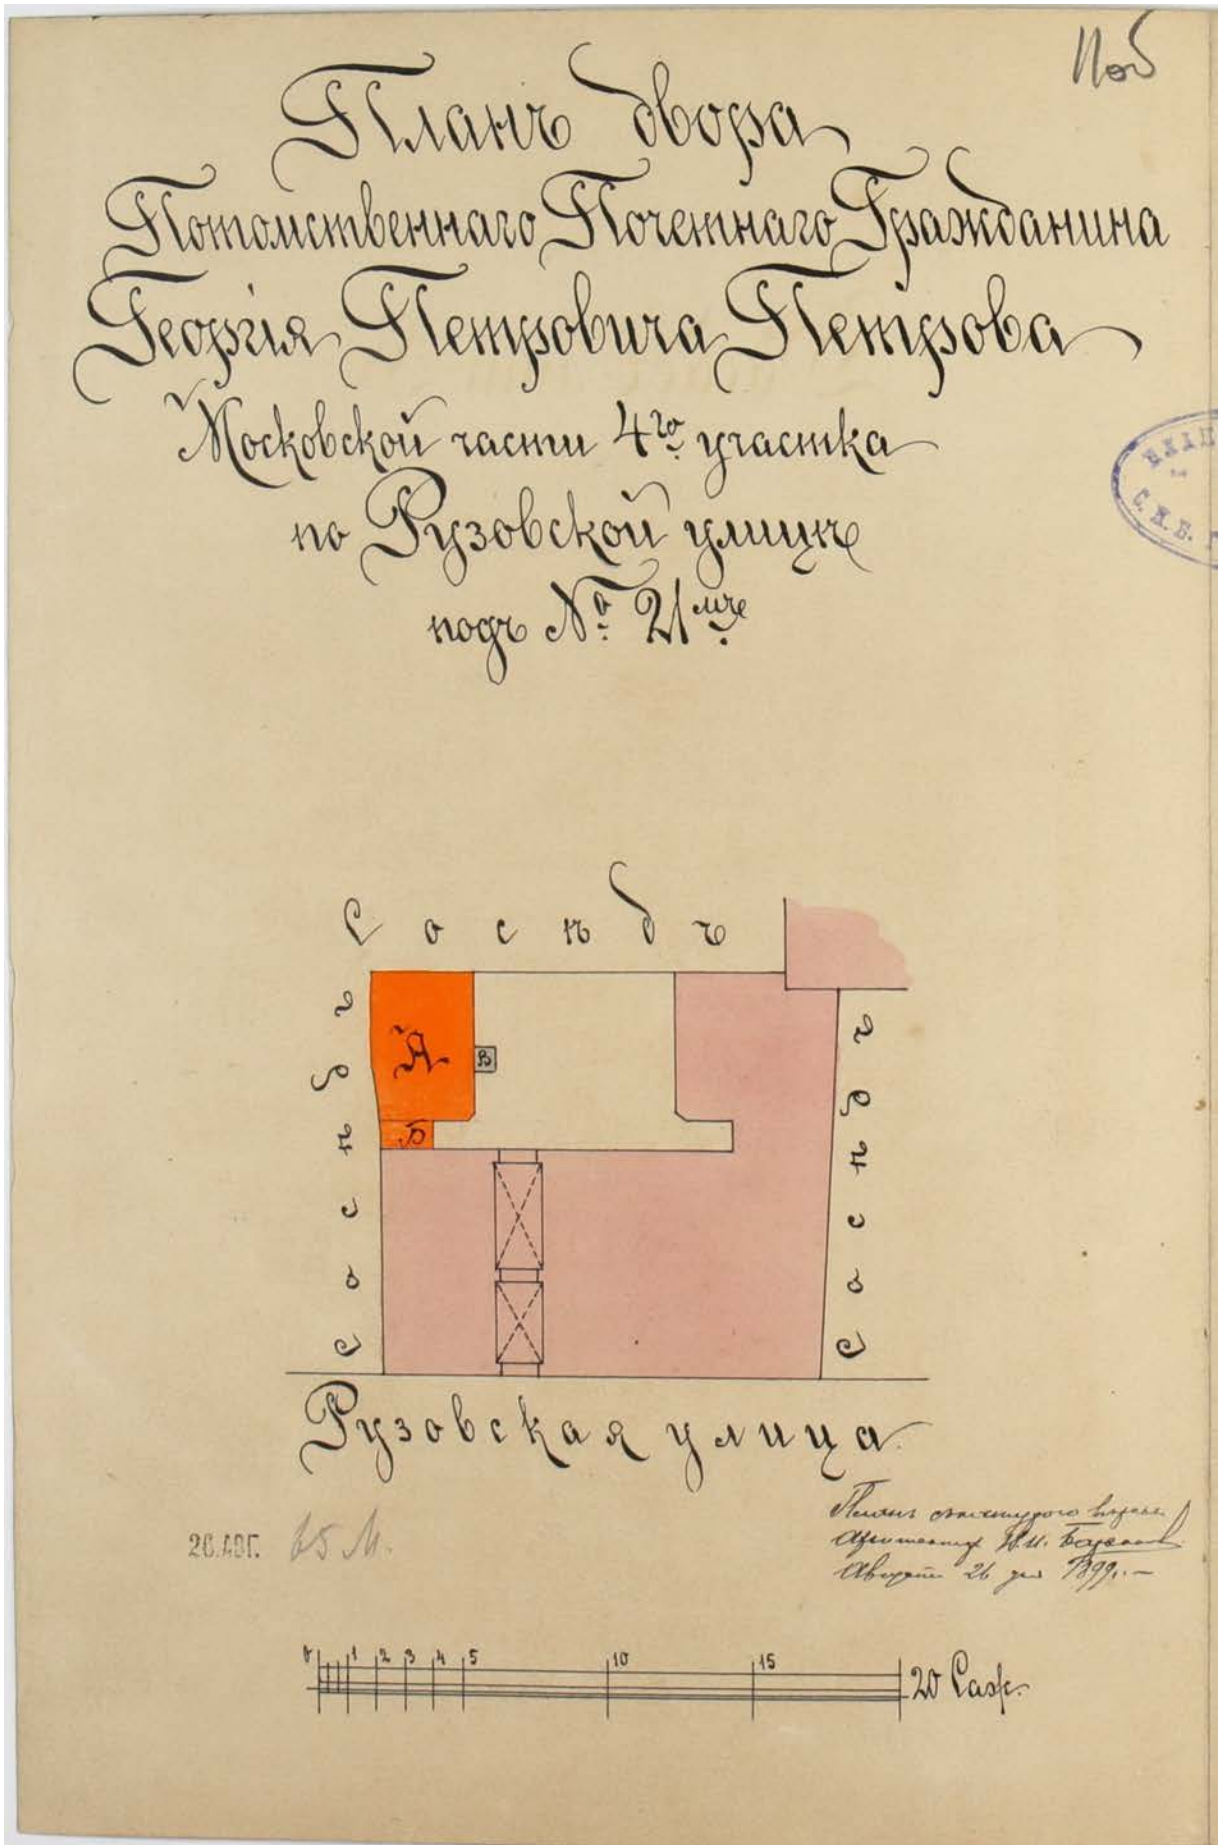 Планъ двора
Потомственнаго Почетнаго Гражданина
Георгія Петровича Петрова
Московской части 4го участка
по Рузовской улицѣ
подъ № 21мъ
Сосѣдъ
Сосѣдъ
Сосѣдъ
А
В
Б
Рузовская улица
26 АВГ.
Планъ
Августа 26 дня 1899.
0 1 2 3 4 5 10 15 20 Саж.
С.П.Б.